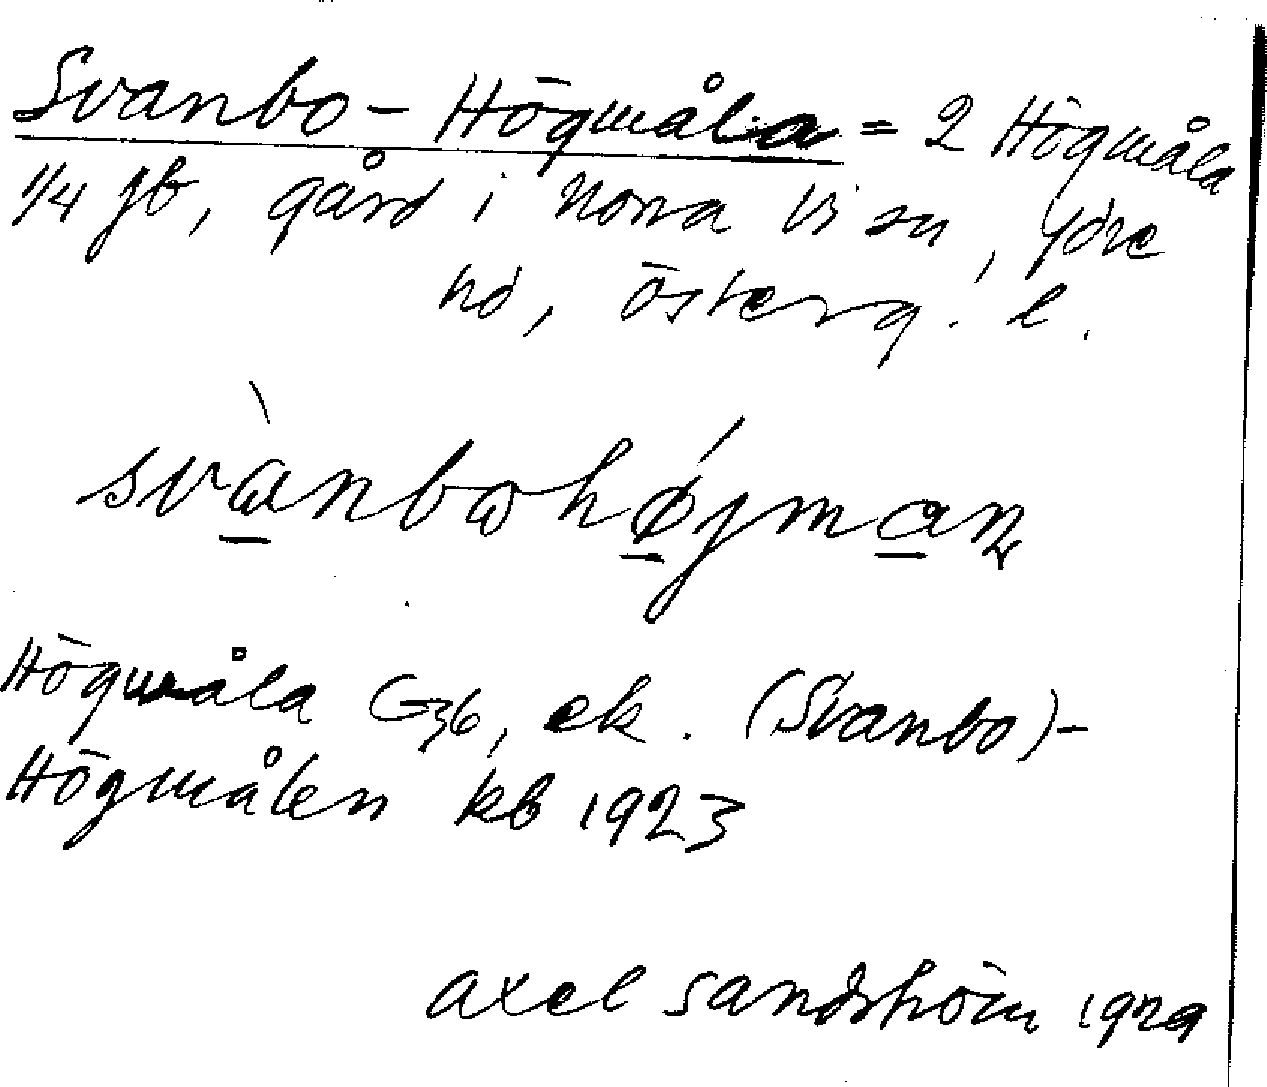 Svanbo-Högmåla = 2 Högmåla
1/4 jb, gård i Norra Vi sn, Ydre
hd, Österg. l.
svànbωhǿjman
Högmåla G36, ek. (Svanbo)-
Högmålen kb 1923
Axel Sandström 1929